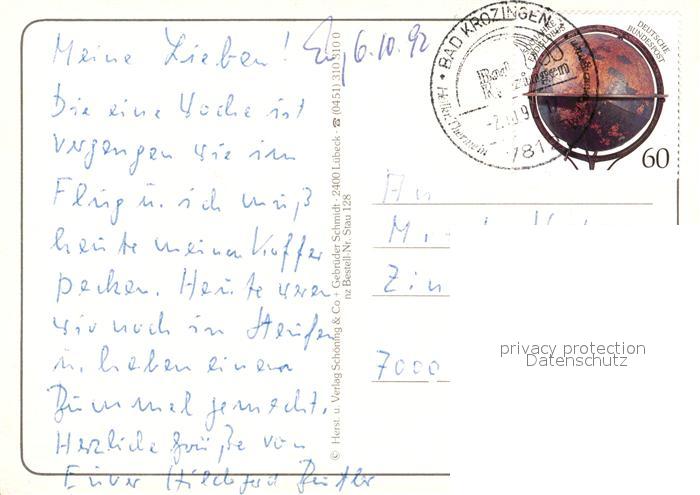 Meine Lieben! 6.10.92
Die eine Woche ist
vergangen wie im
Flug u. ich muß
heute meinen Koffer
packen. Heute waren
wir noch in Staufen
u. haben einen
Bummel gemacht.
Herzliche Grüße von
Eurer Hildegard
© Herst. u. Verlag Schöning & Co + Gebrüder Schmidt · 2400 Lübeck · ☎ (0451) 310310 0
nz Bestell-Nr. Stau 128
BAD KROZINGEN
Bad
Krozingen
781
DEUTSCHE
BUNDESPOST
60
An
7000
privacy protection
Datenschutz